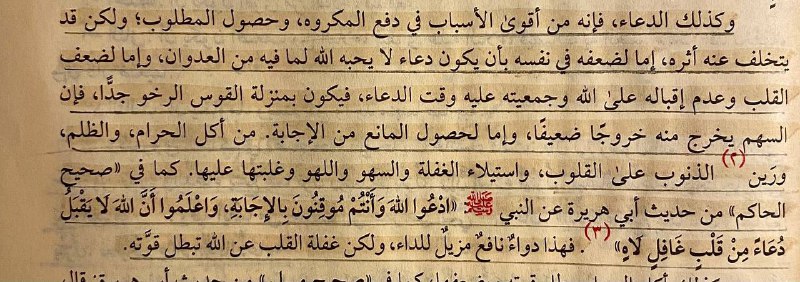 وكذلك الدعاء، فإنه من أقوىٰ الأسباب في دفع المكروه، وحصول المطلوب؛ ولكن قد
يتخلف عنه أثره، إما لضعفه في نفسه بأن يكون دعاء لا يحبه الله لما فيه من العدوان، وإما لضعف
القلب وعدم إقباله علىٰ الله وجمعيته عليه وقت الدعاء، فيكون بمنزلة القوس الرخو جدًّا، فإن
السهم يخرج منه خروجًا ضعيفًا، وإما لحصول المانع من الإجابة. من أكل الحرام، والظلم،
ورَين (٢) الذنوب علىٰ القلوب، واستيلاء الغفلة والسهو واللهو وغلبتها عليها. كما في «صحيح
الحاكم» من حديث أبي هريرة عن النبي ﷺ «ادْعُوا اللهَ وَأَنْتُمْ مُوقِنُونَ بِالإِجَابَةِ، وَاعْلَمُوا أَنَّ اللهَ لَا يَقْبَلُ
دُعَاءً مِنْ قَلْبٍ غَافِلٍ لَاهٍ» (٣). فهذا دواءٌ نافعٌ مزيلٌ للداء، ولكن غفلة القلب عن الله تبطل قوَّته.